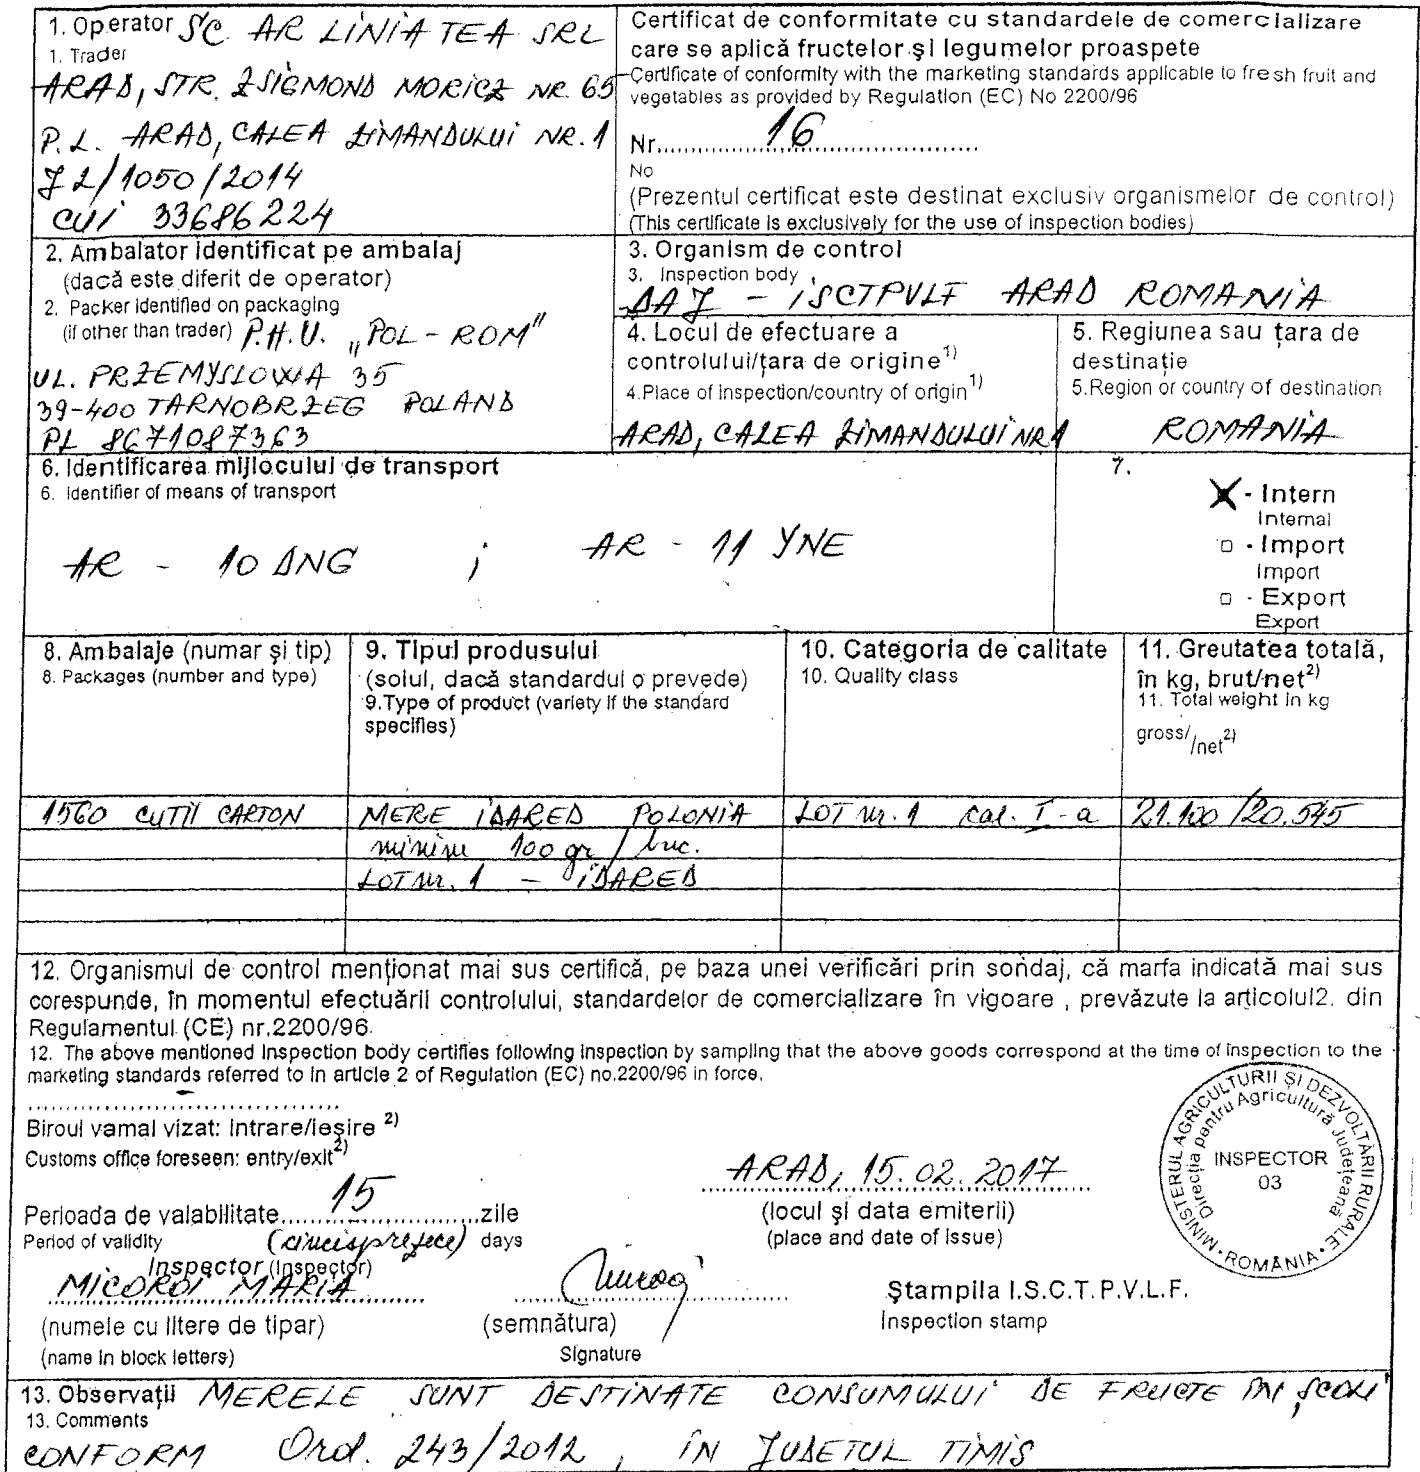 1. Operator SC AR LINIA TEA SRL
1. Trader
ARAD, STR. ZSIGMOND MORICZ NR. 65
P.L. ARAD, CALEA ZIMANDULUI NR. 1
J2/1050/2014
CUI 33686224
Certificat de conformitate cu standardele de comercializare
care se aplică fructelor şi legumelor proaspete
Certificate of conformity with the marketing standards applicable to fresh fruit and
vegetables as provided by Regulation (EC) No 2200/96
Nr. 16
No
(Prezentul certificat este destinat exclusiv organismelor de control)
(This certificate is exclusively for the use of inspection bodies)
2. Ambalator identificat pe ambalaj
(dacă este diferit de operator)
2. Packer identified on packaging
(if other than trader) P.H.U. „POL-ROM"
UL. PRZEMYSLOWA 35
39-400 TARNOBRZEG POLAND
PL 8671087363
3. Organism de control
3. Inspection body
DAJ - ISCTPVLF ARAD ROMANIA
4. Locul de efectuare a
controlului/ţara de origine 1)
4.Place of inspection/country of origin 1)
ARAD, CALEA ZIMANDULUI NR 1
5. Regiunea sau ţara de
destinaţie
5.Region or country of destination
ROMANIA
6. Identificarea mijlocului de transport
6. Identifier of means of transport
AR - 10 DNG ; AR - 11 YNE
7.
X - Intern
Internal
□ - Import
Import
□ - Export
Export
8. Ambalaje (numar şi tip)
8. Packages (number and type)
9. Tipul produsului
(soiul, dacă standardul o prevede)
9.Type of product (variety if the standard
specifies)
10. Categoria de calitate
10. Quality class
11. Greutatea totală,
în kg, brut/net 2)
11. Total weight in kg
gross/ /net 2)
1560 CUTII CARTON MERE IDARED POLONIA LOT nr. 1 cal. I-a 21.100/20.545
minim 100 gr/buc.
LOT nr. 1 - IDARED
12. Organismul de control menţionat mai sus certifică, pe baza unei verificări prin sondaj, că marfa indicată mai sus
corespunde, în momentul efectuării controlului, standardelor de comercializare în vigoare , prevăzute la articolul2. din
Regulamentul (CE) nr.2200/96.
12. The above mentioned inspection body certifies following inspection by sampling that the above goods correspond at the time of inspection to the
marketing standards referred to in article 2 of Regulation (EC) no.2200/96 in force.
Biroul vamal vizat: intrare/ieşire 2)
Customs office foreseen: entry/exit 2)
Perioada de valabilitate 15 zile
Period of validity (cincisprezece) days
ARAD, 15.02.2017
(locul şi data emiterii)
(place and date of issue)
MINISTERUL AGRICULTURII ŞI DEZVOLTĂRII RURALE
Direcţia pentru Agricultură Judeţeană
INSPECTOR
03
• ROMÂNIA •
Inspector (Inspector)
MICOROI MARIA
(numele cu litere de tipar)
(name in block letters)
(semnătura)
Signature
Ştampila I.S.C.T.P.V.L.F.
Inspection stamp
13. Observaţii MERELE SUNT DESTINATE CONSUMULUI DE FRUCTE ÎN ŞCOLI
13. Comments
CONFORM Ord. 243/2012, ÎN JUDEȚUL TIMIS